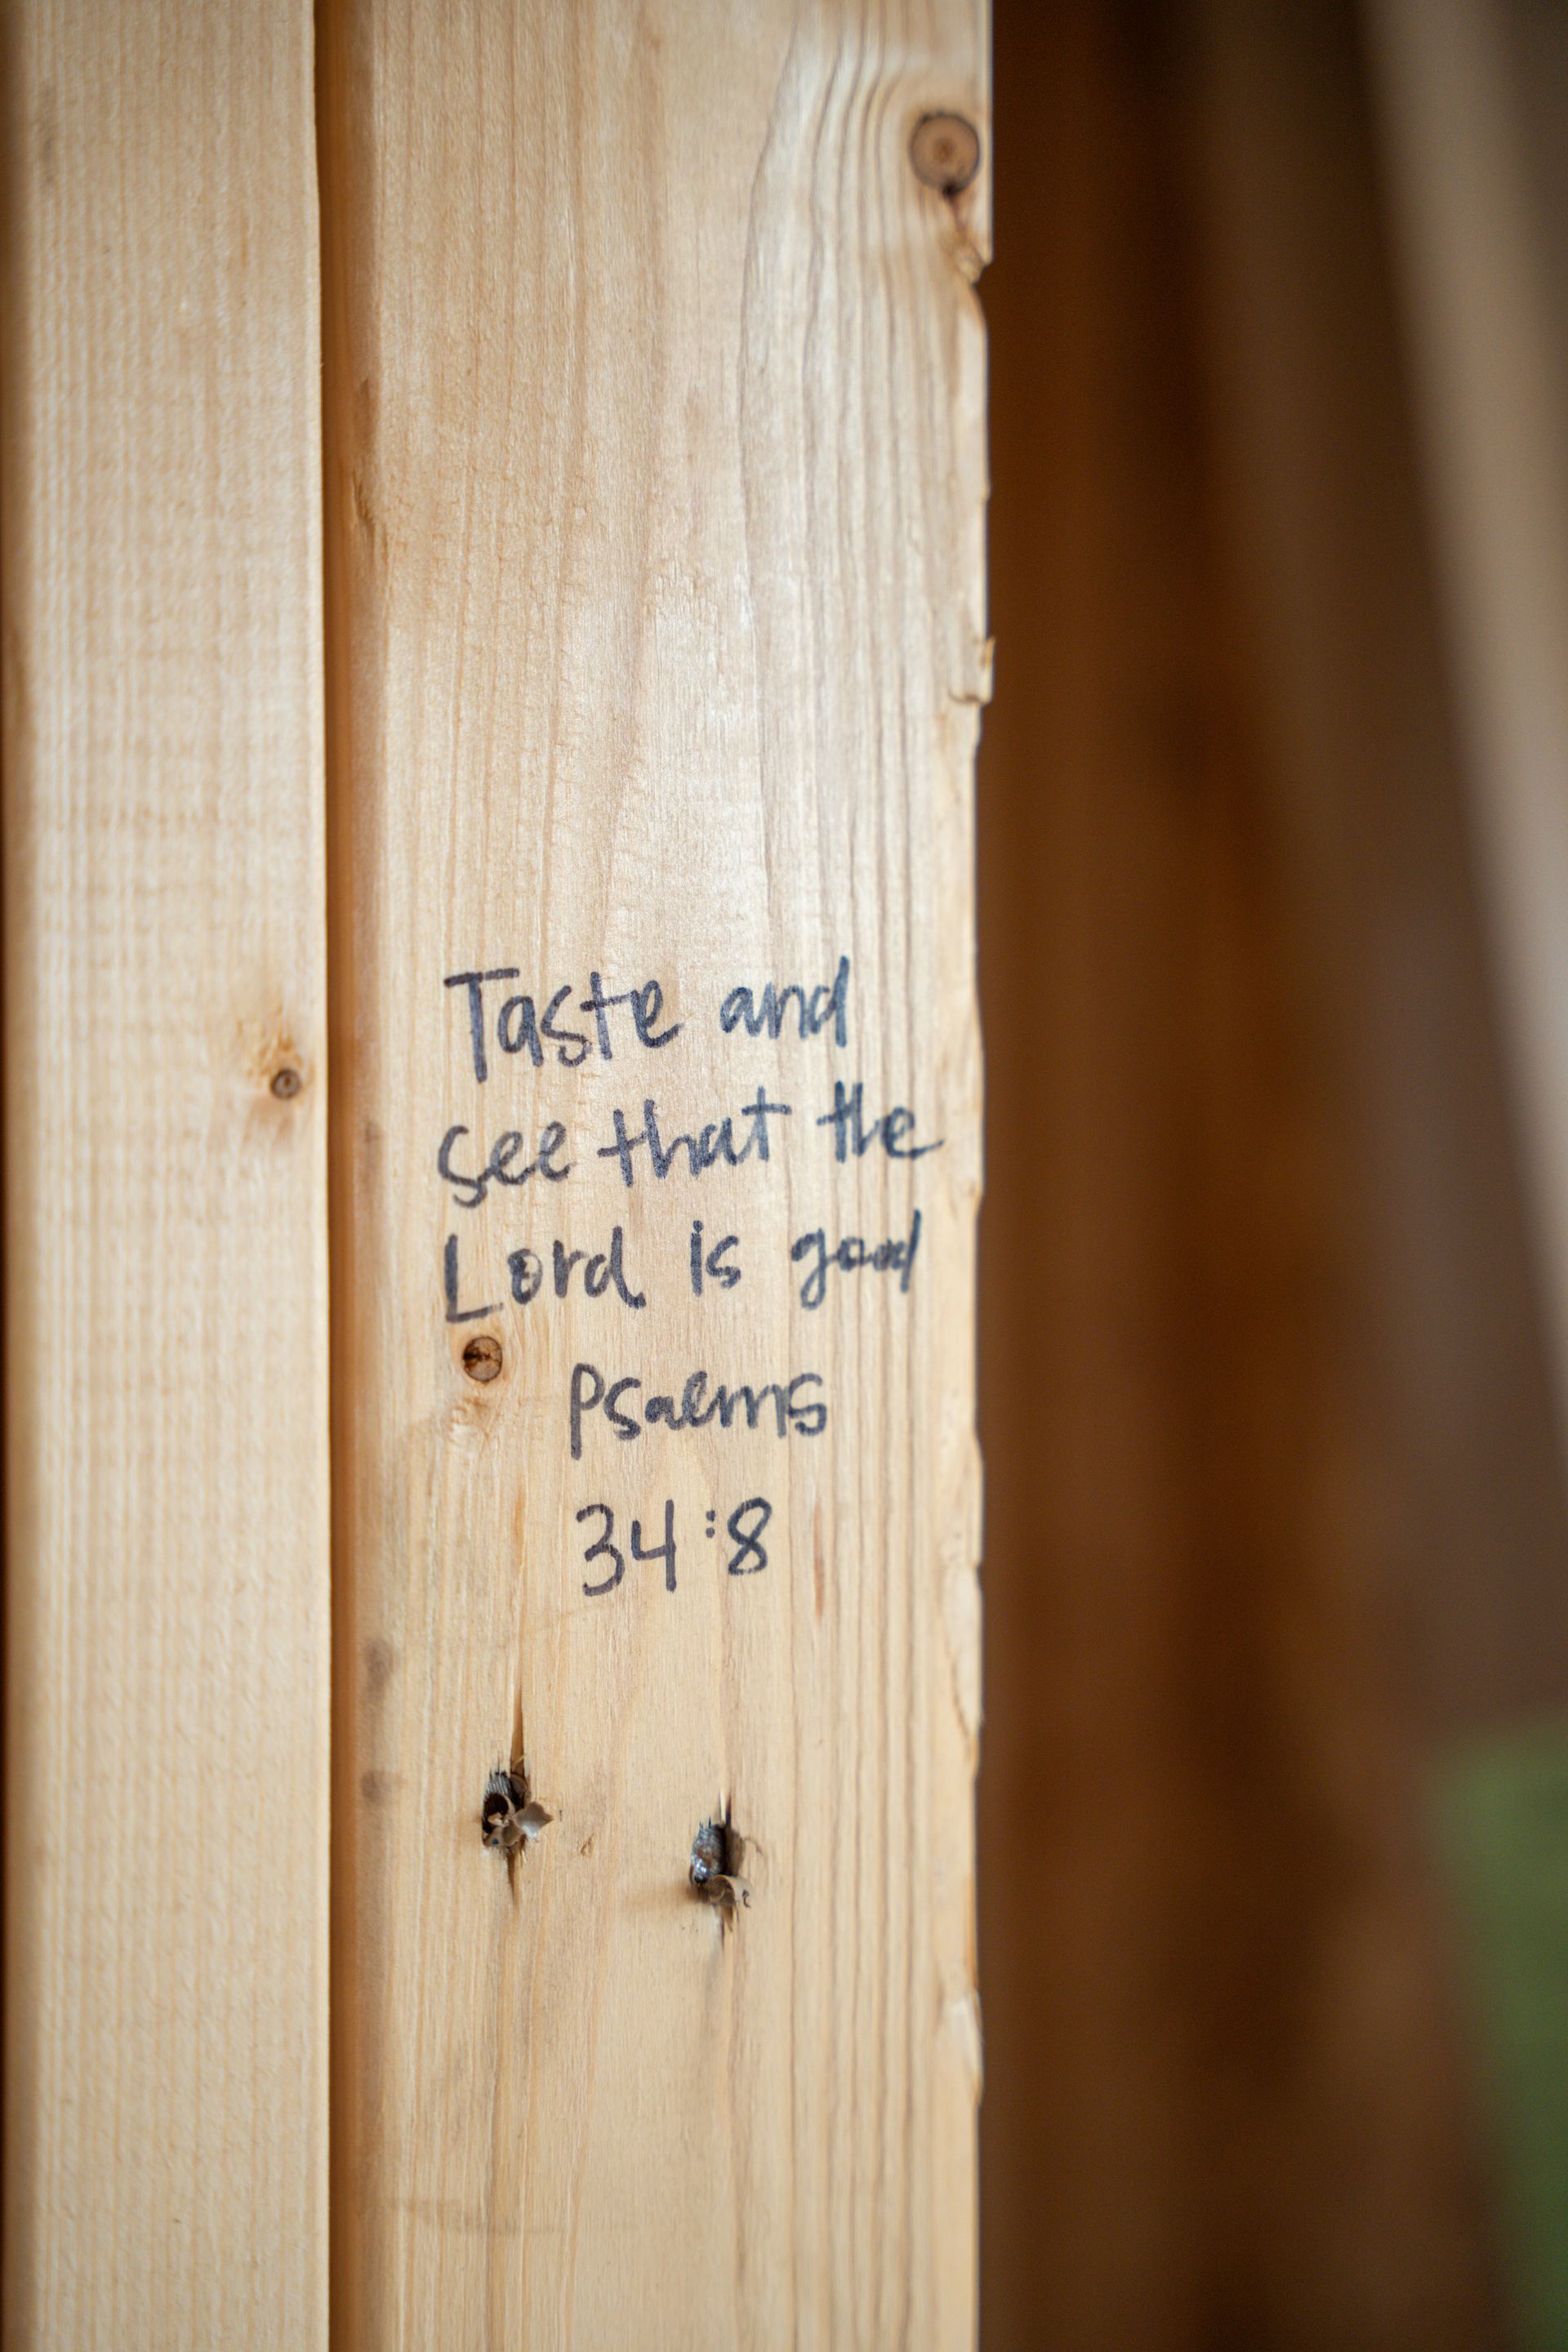 Taste and
see that the
Lord is good
Psalms
34:8